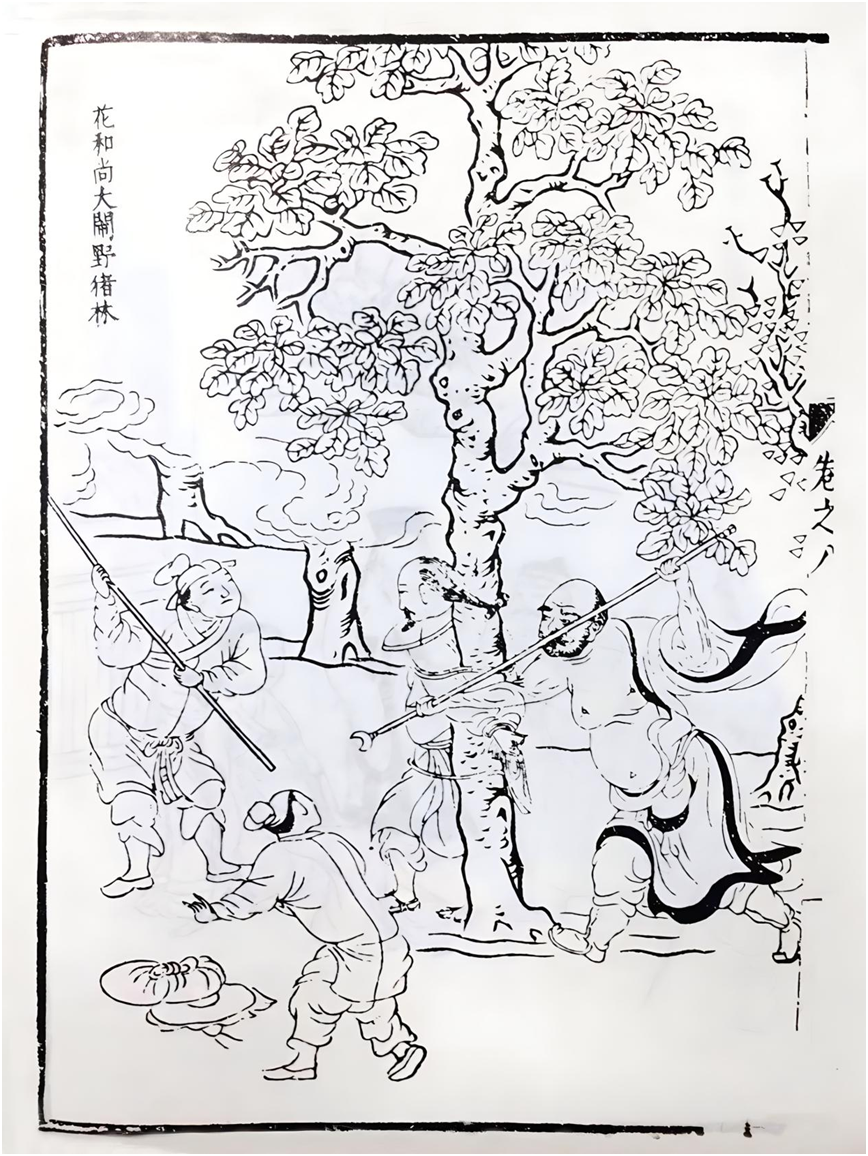 花和尚大鬧野猪林
卷之八